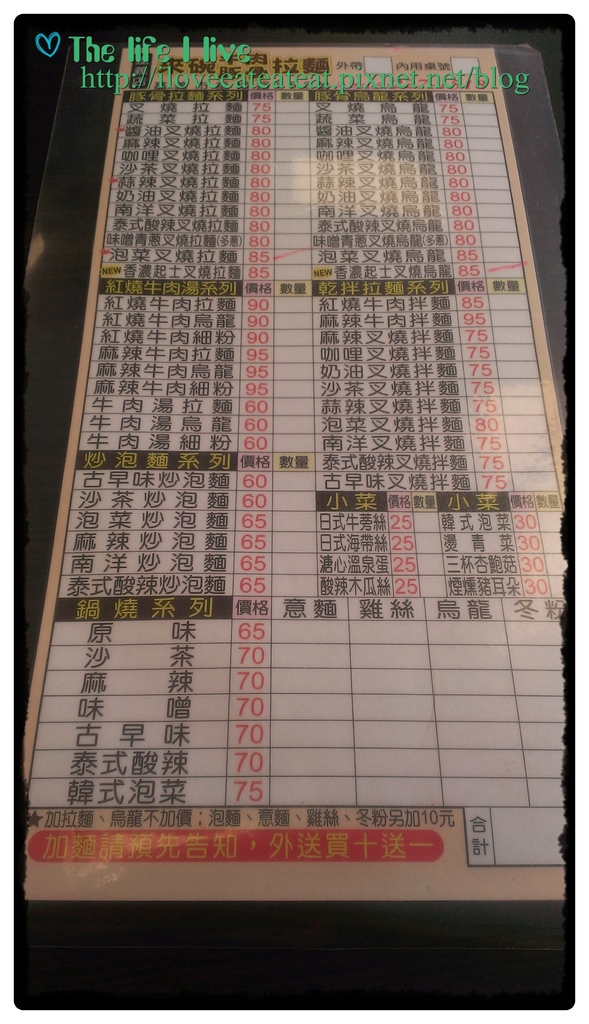 The life I live
http://iloveeateateat.pixnet.net/blog
來碗 拉麵 外帶 內用桌號
豚骨拉麵系列 價格 數量
叉燒拉麵 75
蔬菜拉麵 75
醬油叉燒拉麵 80
麻辣叉燒拉麵 80
咖哩叉燒拉麵 80
沙茶叉燒拉麵 80
蒜辣叉燒拉麵 80
奶油叉燒拉麵 80
南洋叉燒拉麵 80
泰式酸辣叉燒拉麵 80
味噌青蔥叉燒拉麵(多蔥) 80
泡菜叉燒拉麵 85
NEW 香濃起士叉燒拉麵 85
豚骨烏龍系列 價格 數量
叉燒烏龍 75
蔬菜烏龍 75
醬油叉燒烏龍 80
麻辣叉燒烏龍 80
咖哩叉燒烏龍 80
沙茶叉燒烏龍 80
蒜辣叉燒烏龍 80
奶油叉燒烏龍 80
南洋叉燒烏龍 80
泰式酸辣叉燒烏龍 80
味噌青蔥叉燒烏龍(多蔥) 80
泡菜叉燒烏龍 85
NEW 香濃起士叉燒烏龍 85
紅燒牛肉湯系列 價格 數量
紅燒牛肉拉麵 90
紅燒牛肉烏龍 90
紅燒牛肉細粉 90
麻辣牛肉拉麵 95
麻辣牛肉烏龍 95
麻辣牛肉細粉 95
牛肉湯拉麵 60
牛肉湯烏龍 60
牛肉湯細粉 60
乾拌拉麵系列 價格 數量
紅燒牛肉拌麵 85
麻辣牛肉拌麵 95
麻辣叉燒拌麵 75
咖哩叉燒拌麵 75
奶油叉燒拌麵 75
沙茶叉燒拌麵 75
蒜辣叉燒拌麵 75
泡菜叉燒拌麵 80
南洋叉燒拌麵 75
泰式酸辣叉燒拌麵 75
古早味叉燒拌麵 75
炒泡麵系列 價格 數量
古早味炒泡麵 60
沙茶炒泡麵 60
泡菜炒泡麵 65
麻辣炒泡麵 65
南洋炒泡麵 65
泰式酸辣炒泡麵 65
小菜 價格 數量 小菜 價格 數量
日式牛蒡絲 25 韓式泡菜 30
日式海帶絲 25 燙青菜 30
溏心溫泉蛋 25 三杯杏鮑菇 30
酸辣木瓜絲 25 煙燻豬耳朵 30
鍋燒系列 價格 意麵 雞絲 烏龍 冬粉
原味 65
沙茶 70
麻辣 70
味噌 70
古早味 70
泰式酸辣 70
韓式泡菜 75
★加拉麵、烏龍不加價；泡麵、意麵、雞絲、冬粉另加10元
加麵請預先告知，外送買十送一
合計